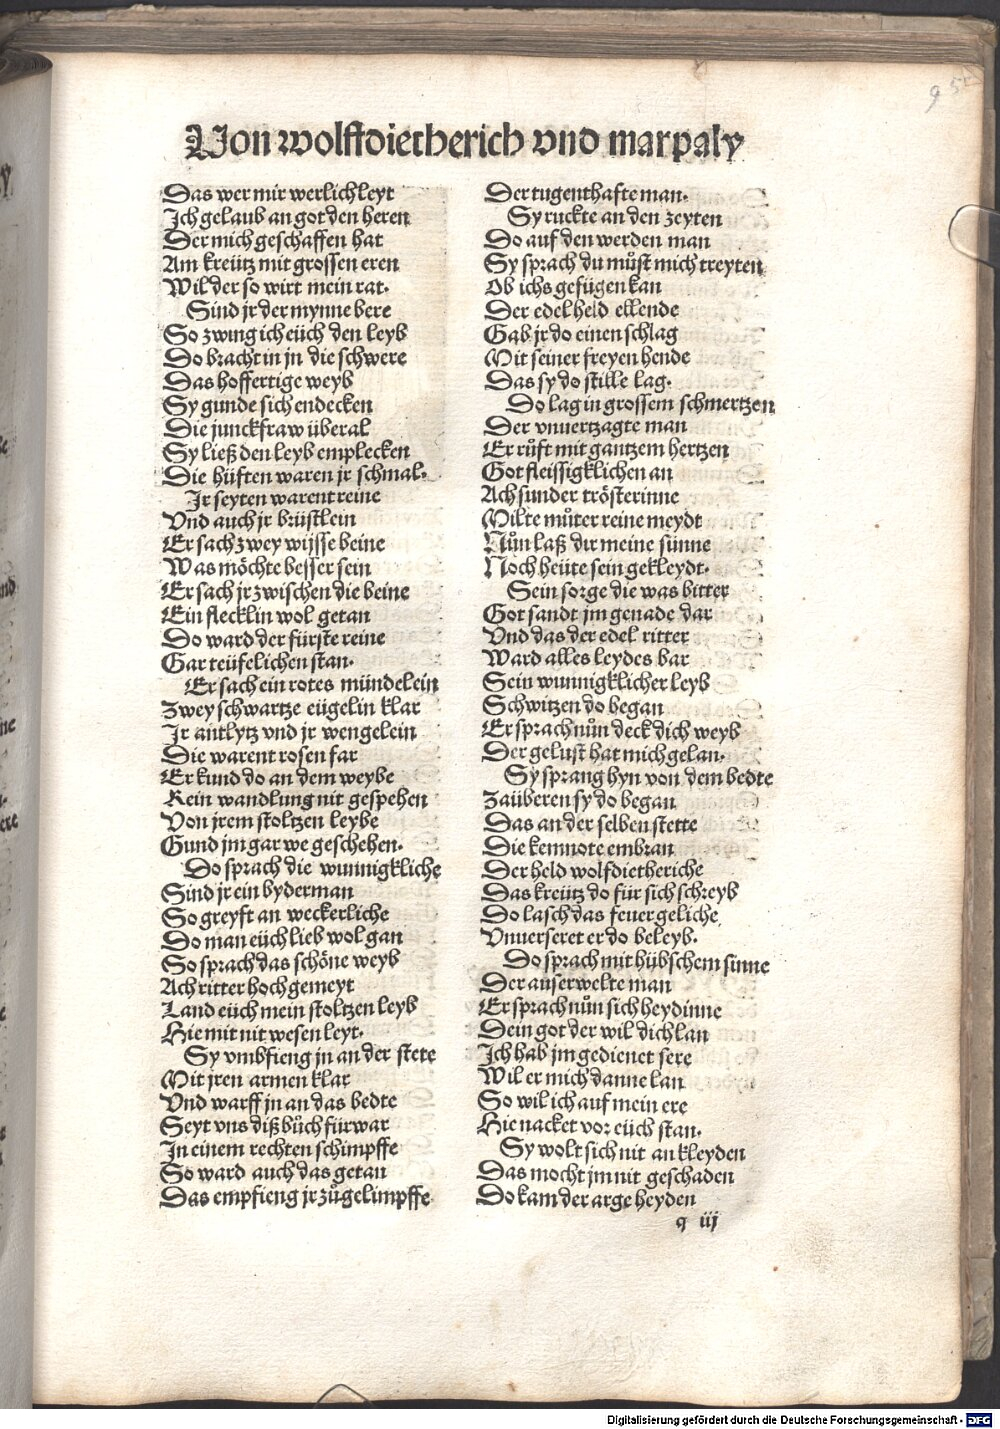 95
Von wolffdietherich vnd marpaly
Das wer mir werlich leyt
Ich gelaub an got den heren
Der mich geschaffen hat
Am kreütz mit grossen eren
Wil der so wirt mein rat.
Sind jr der mynne bere
So zwing ich eüch den leyb
Do bracht in jn die schwere
Das hoffertige weyb
Sy gunde sich endecken
Die junckfraw überal
Sy ließ den leyb emplecken
Die hüften waren jr schmal.
Ir seyten warent reine
Vnd auch jr brüstlein
Er sach zwey wijsse beine
Was möchte besser sein
Er sach jr zwischen die beine
Ein flecklin wol getan
Do ward der fürste reine
Gar teüfelichen stan.
Er sach ein rotes mündelein
Zwey schwartze eügelin klar
Ir antlytz vnd jr wengelein
Die warent rosen far
Er kund do an dem weybe
Kein wandlung nit gespehen
Von jrem stoltzen leybe
Gund jm gar we geschehen.
Do sprach die wunnigkliche
Sind jr ein byderman
So greyft an weckerliche
Do man eüch lieb wol gan
So sprach das schöne weyb
Ach ritter hochgemeyt
Land eüch mein stoltzen leyb
Hie mit nit wesen leyt.
Sy vmbfieng jn an der stete
Mit jren armen klar
Vnd warff jn an das bedte
Seyt vns diß bůch fürwar
In einem rechten schimpffe
So ward auch das getan
Das empfieng jr zůgelimpffe
Der tugenthafte man.
Sy ruckte an den zeyten
Do auf den werden man
Sy sprach du můst mich treyten
Ob ichs gefügen kan
Der edel held ellende
Gab jr do einen schlag
Mit seiner freyen hende
Das sy do stille lag.
Do lag in grossem schmertzen
Der vnuertzagte man
Er růft mit gantzem hertzen
Got fleissigklichen an
Ach sunder trösterinne
Milte můter reine meydt
Nůn laß dir meine sünne
Noch heüte sein gekleydt.
Sein sorge die was bitter
Got sandt jm genade dar
Vnd das der edel ritter
Ward alles leydes bar
Sein wunnigklicher leyb
Schwitzen do began
Er sprach nůn deck dich weyb
Der gelust hat mich gelan.
Sy sprang hyn von dem bedte
Zaüberen sy do began
Das an der selben stette
Die kemnote embran
Der held wolfdietheriche
Das kreütz do für sich schreyb
Do lasch das feuer geliche
Vnuerseret er do beleyb.
Do sprach mit hübschem sinne
Der auserwelte man
Er sprach nůn sich heydinne
Dein got der wil dich lan
Ich hab jm gedienet sere
Wil er mich danne lan
So wil ich auf mein ere
Hie nacket vor eüch stan.
Sy wolt sich nit an kleyden
Das mocht jm nit geschaden
Do kam der arge heyden
q iij
Digitalisierung gefördert durch die Deutsche Forschungsgemeinschaft - DFG